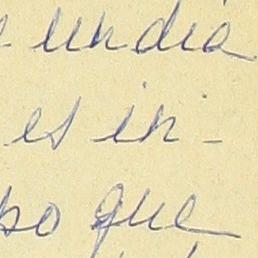 un dia
es in-
po que